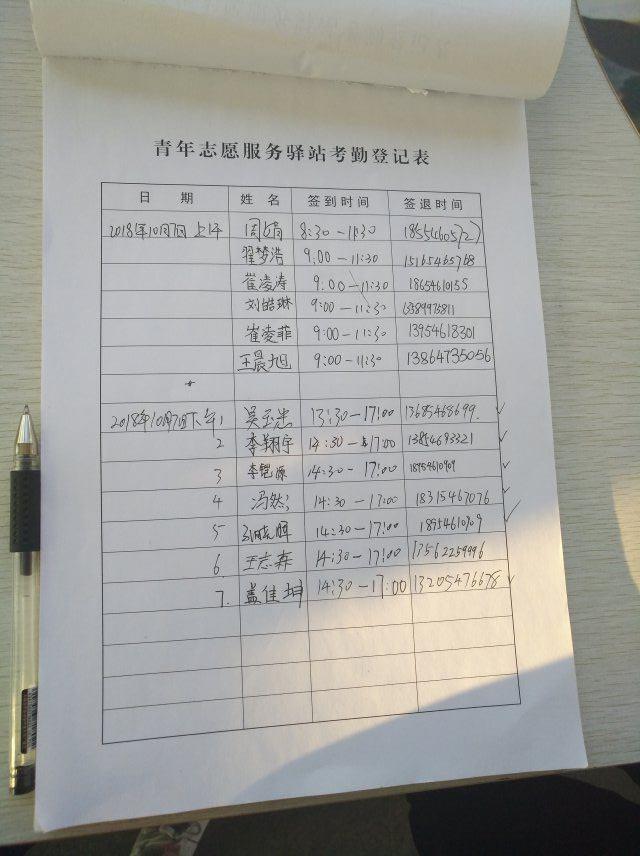 青年志愿服务驿站考勤登记表
日 期 姓 名 签到时间 签退时间
2018年10月7日 上午 周娟 8:30-11:30 18554605727
翟梦浩 9:00-11:30 15165465768
崔凌涛 9:00-11:30 18654610155
刘皓琳 9:00-11:30 13589975811
崔凌菲 9:00-11:30 13954618301
王晨旭 9:00-11:30 13864735056
2018年10月7日下午1 吴玉忠 13:30-17:00 13685468699
2 李翔宇 14:30-17:00 13854693321
3 李锶源 14:30-17:00 18954610909
4 冯然 14:30-17:00 18315467076
5 14:30-17:00
6. 王志森 14:30-17:00 13562259996
7. 孟佳坤 14:30-17:00 13205476678